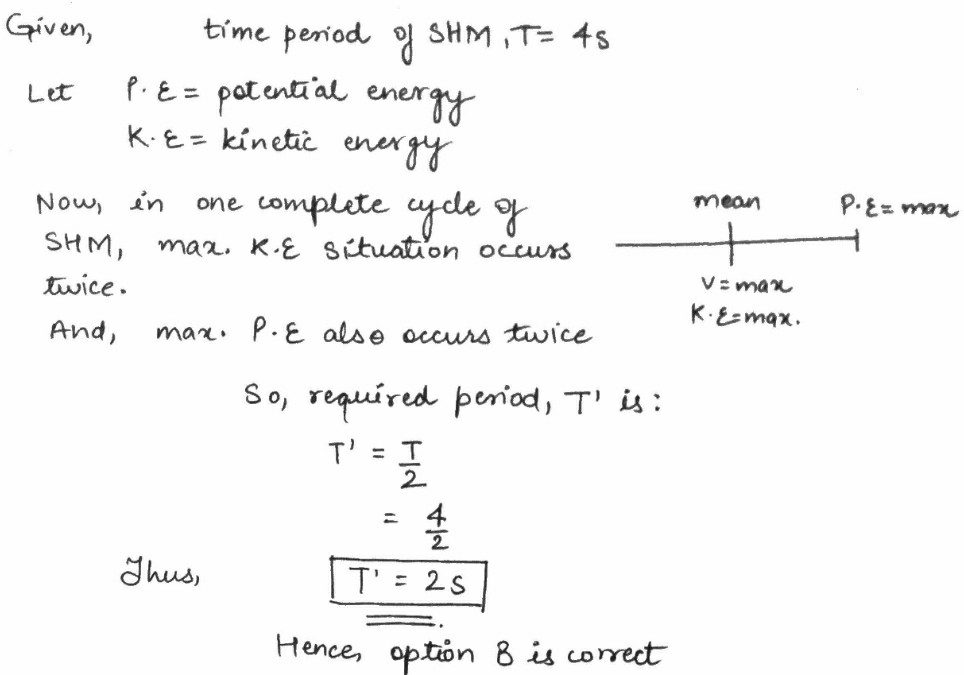 Given, time period of SHM, T= 4s
Let P.E = potential energy
K.E = kinetic energy
Now, in one complete cycle of
SHM, max. K.E situation occurs
twice.
And, max. P.E also occurs twice
mean P.E = max
V = max
K.E = max.
So, required period, T' is:
T' = T/2
= 4/2
Thus, T' = 2s
Hence, option B is correct